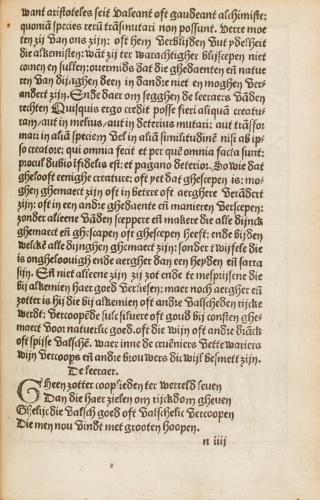 want aristoteles seit valeant oft gaudeant alchimiste:
quoniã species rerũ trãsmutari non possunt. Verre moe
ten zij van ons zijn: oft hem verblijden vut ydelheit
die alkemisten: want zij ter warachtigher blijscepen niet
comen en sullen: ouermids dat die ghedaenten eñ nature
ren van dijnghen deen in dandre niet en moghen ver
andert zijn. Ende daer om segghen de leeraers vãden
rechten Quisquis ergo credit posse fieri aliquã creatu
ram/aut in melius/aut in deterius mutari: aut trãsfor
mari in aliã speciem vel in aliã similitudinẽ nisi ab ip
so creatore: qui omnia fecit et per quẽ omnia facta sunt:
procul dubio ifidelis est: et pagano deterior. So wie dat
ghelooft eenighe creature: oft yet dat ghescepen is: mo
ghen ghemaect zijn oft in betere oft aerghere verãdert
zijn: oft in een andre ghedaente eñ manieren verscepen:
zonder alleene vãden sceppere eñ makere die alle dijnck
ghemaect eñ ghescapen oft ghescepen heeft: ende bijden
welckẽ alle dijnghen ghemaect zijn: sonder twijfele die
is ongheloouigh ende aergher dan een heyden eñ sarra
sijn. Eñ niet alleene zijn zij zot ende te mesprijsene die
bij alkemien haer goed verliesen: maer noch aergher eñ
zotter is hij die bij alkemien oft andre valscheden rijcke
werdt: vercoopẽde sulc siluere oft goud bij consten ghe
maect voor natuerlic goed. oft die wijn oft andre drãck
oft spijse valschẽ. waer inne de crueniers vette wariers
wijn vercoops eñ andre brouwers dicwijl besmett zijn.
De leeraer.
Gheen zotter cooplieden ter werreld leuen
Dan die haer zielen om rijckdom gheuen
Ghelijc die valsch goed oft valschelic vercoopen
Die men nou vindt met grooten hoopen.
n iiij